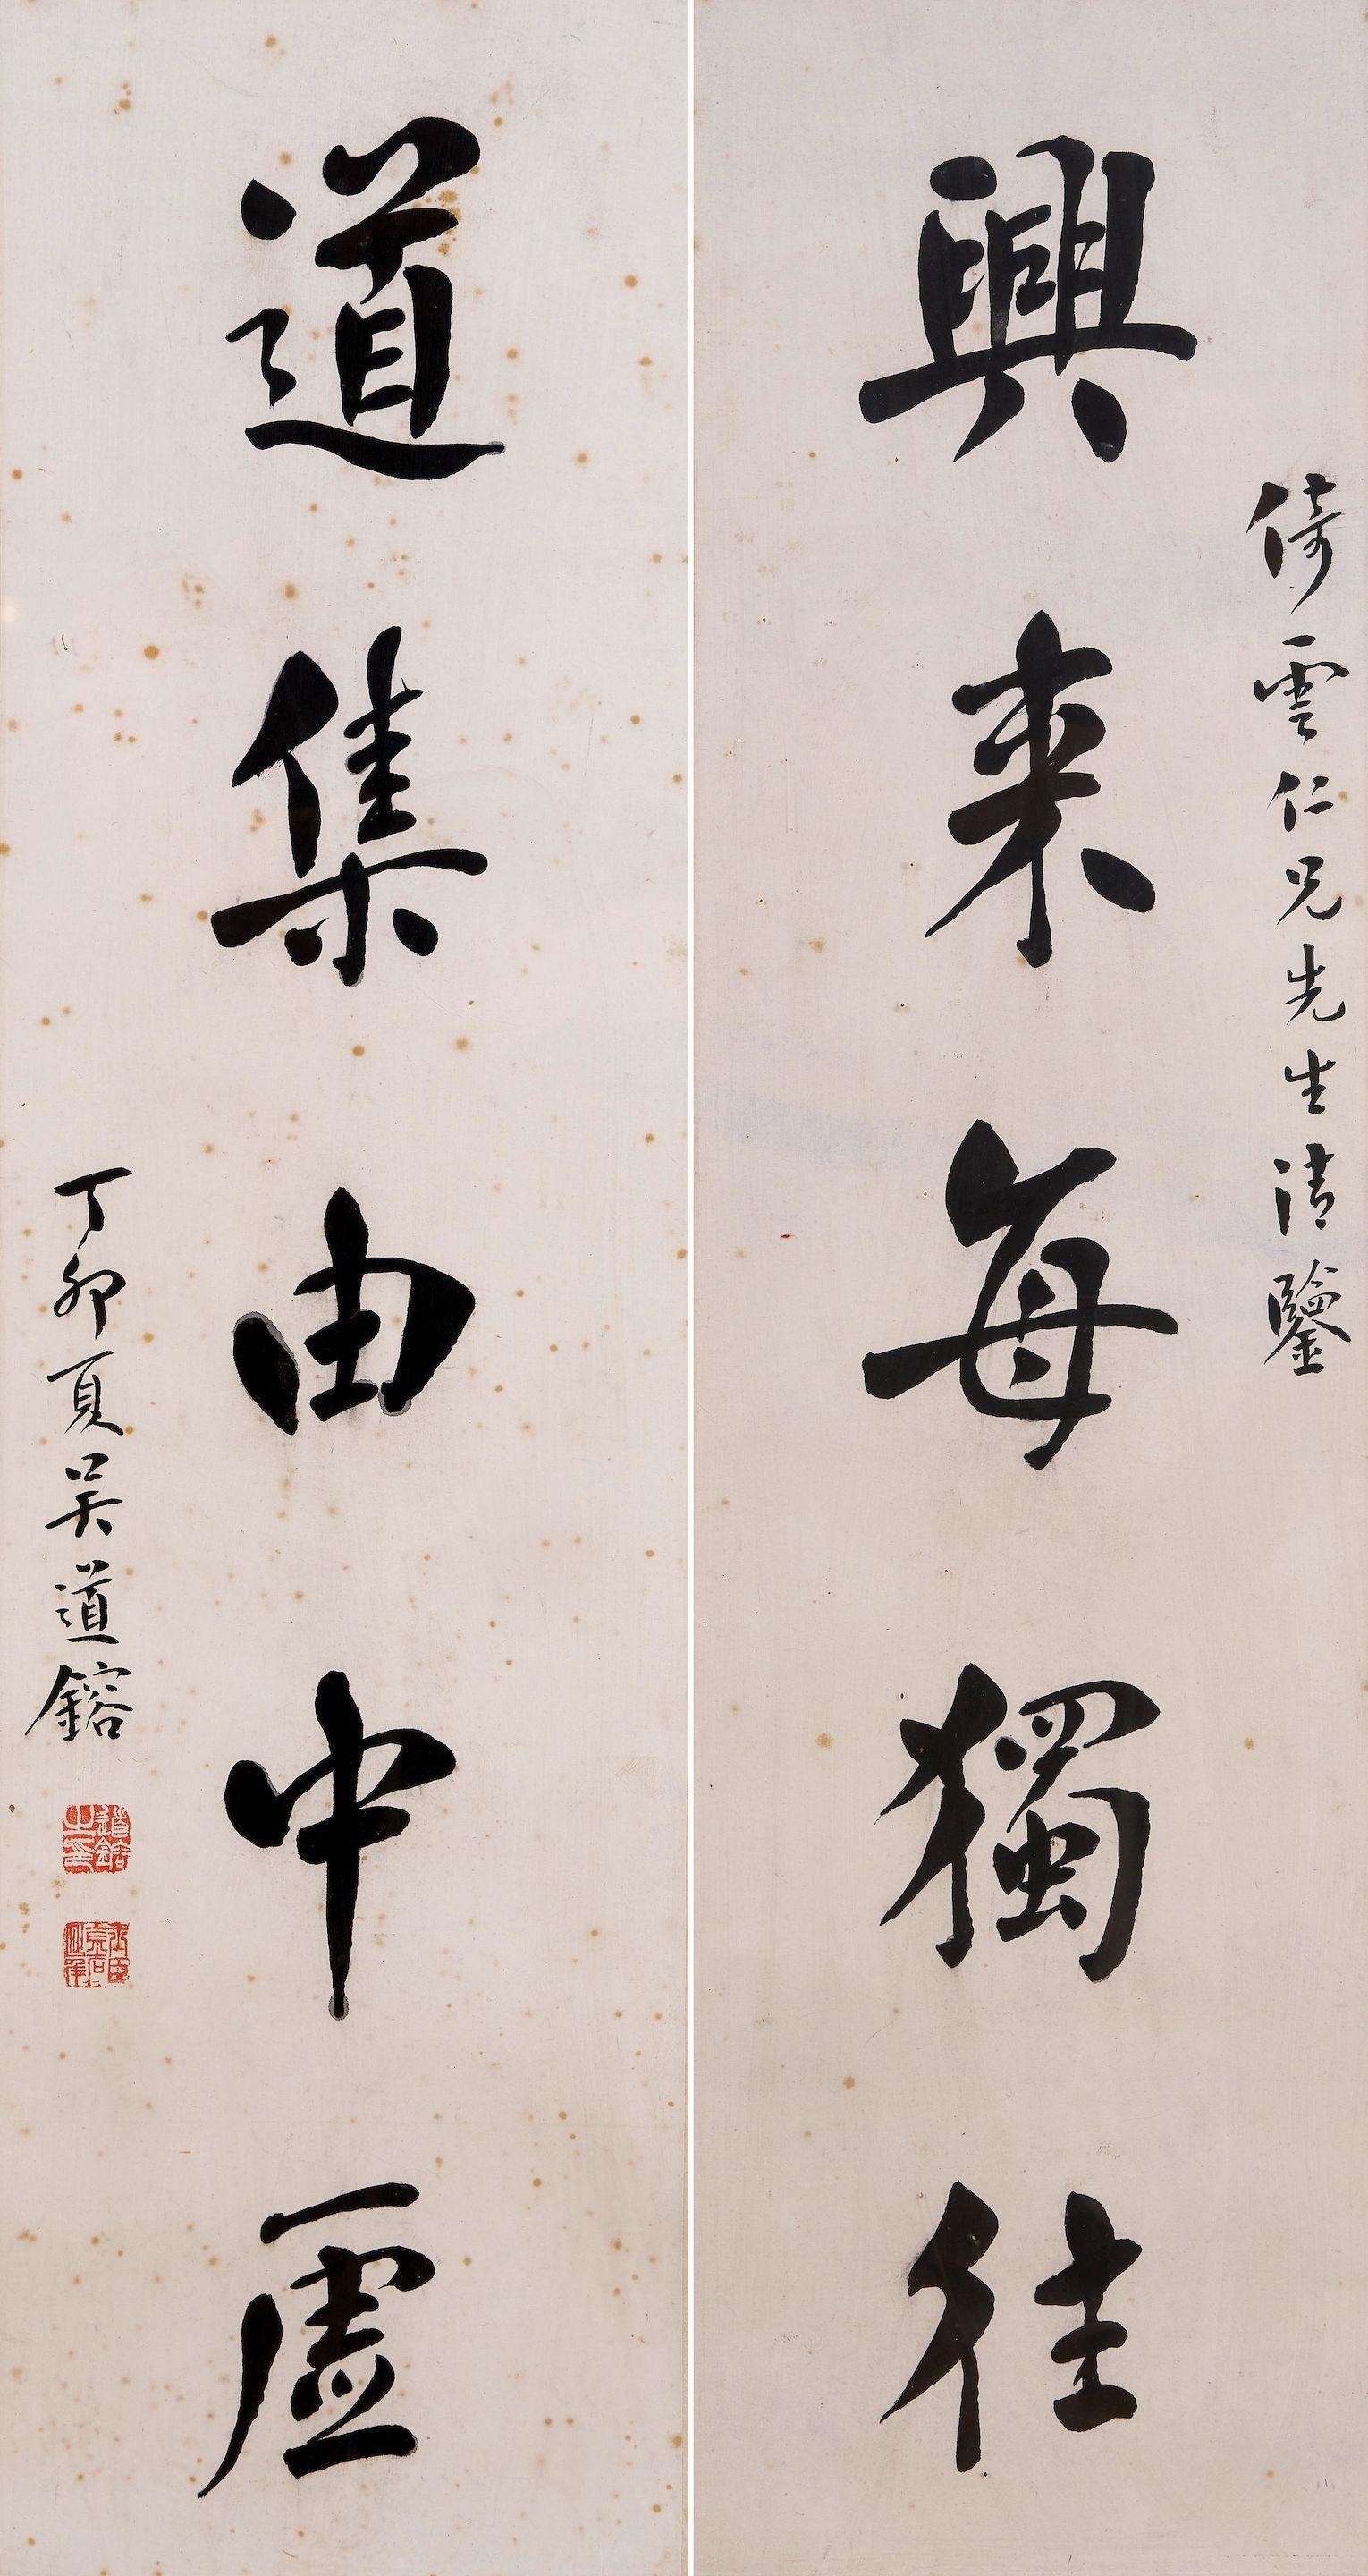 倚雲仁兄先生清鑒
興來每獨往
道集由中虛
丁卯夏吳道鎔
道鎔之印